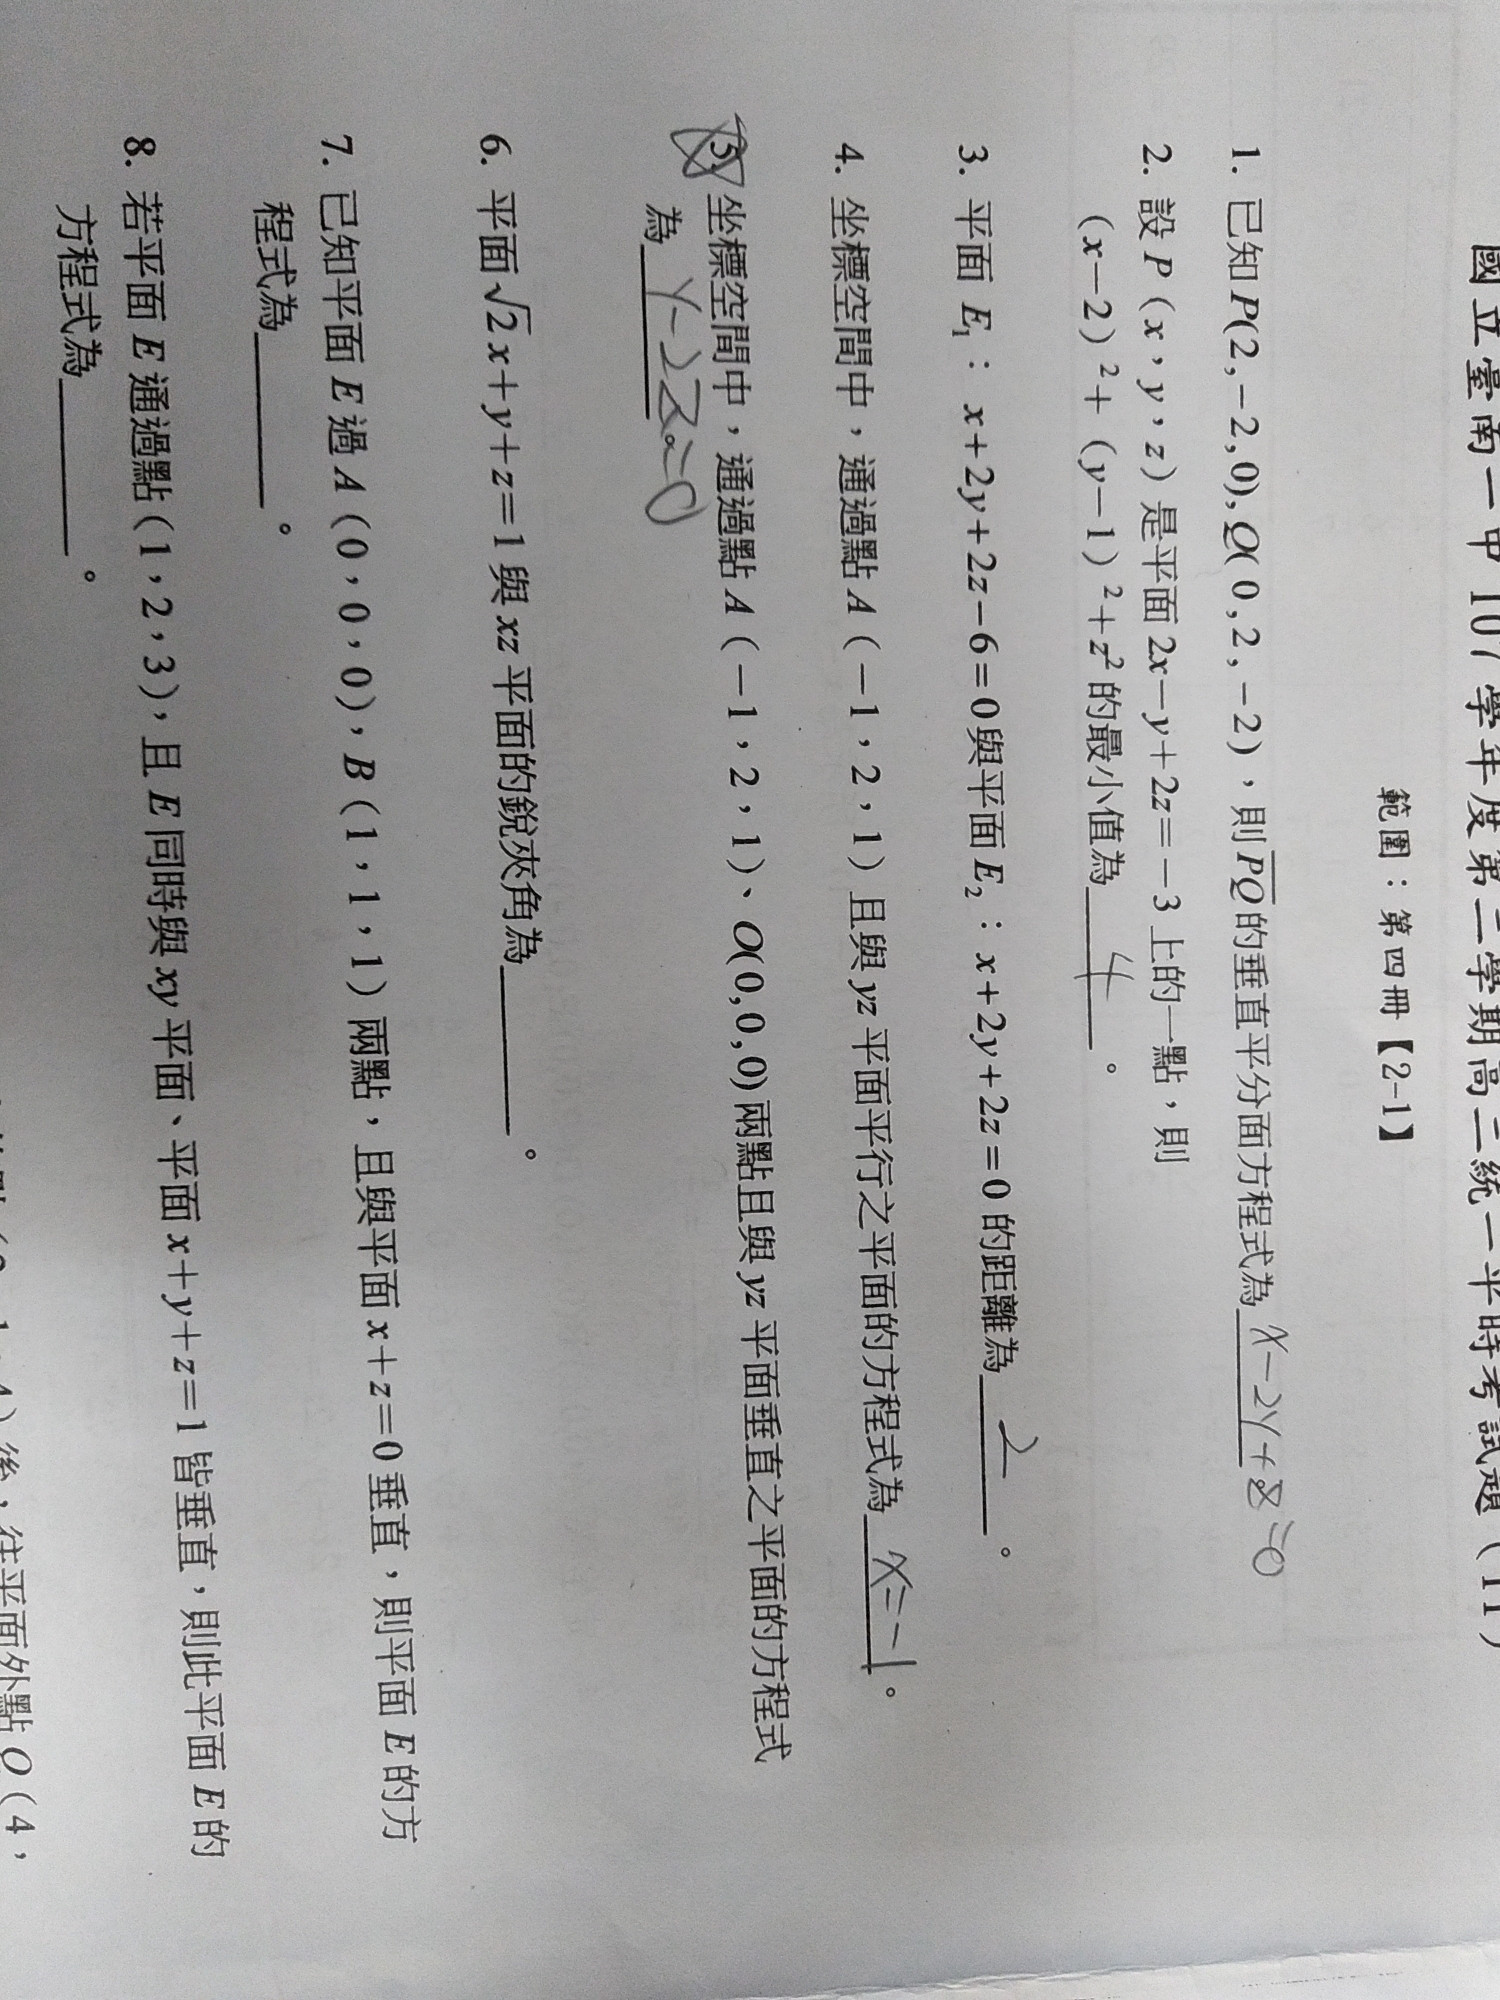 國立臺南一中107學年度第二學期高二統一平時考試題(11)
範圍:第四冊【2-1】
1. 已知P(2,-2,0),Q(0,2,-2),則PQ的垂直平分面方程式為 x-2y+z=0
2. 設P(x,y,z)是平面2x-y+2z=-3上的一點,則
(x-2)²+(y-1)²+z²的最小值為 4 。
3. 平面E₁:x+2y+2z-6=0與平面E₂:x+2y+2z=0的距離為 2 。
4. 坐標空間中,通過點A(-1,2,1)且與yz平面平行之平面的方程式為 x=-1 。
5. 坐標空間中,通過點A(-1,2,1)、O(0,0,0)兩點且與yz平面垂直之平面的方程式
為 y-2z=0
6. 平面√2x+y+z=1與xz平面的銳夾角為 。
7. 已知平面E過A(0,0,0),B(1,1,1)兩點,且與平面x+z=0垂直,則平面E的方
程式為 。
8. 若平面E通過點(1,2,3),且E同時與xy平面、平面x+y+z=1皆垂直,則此平面E的
方程式為 。
後,往平面外點Q(4,